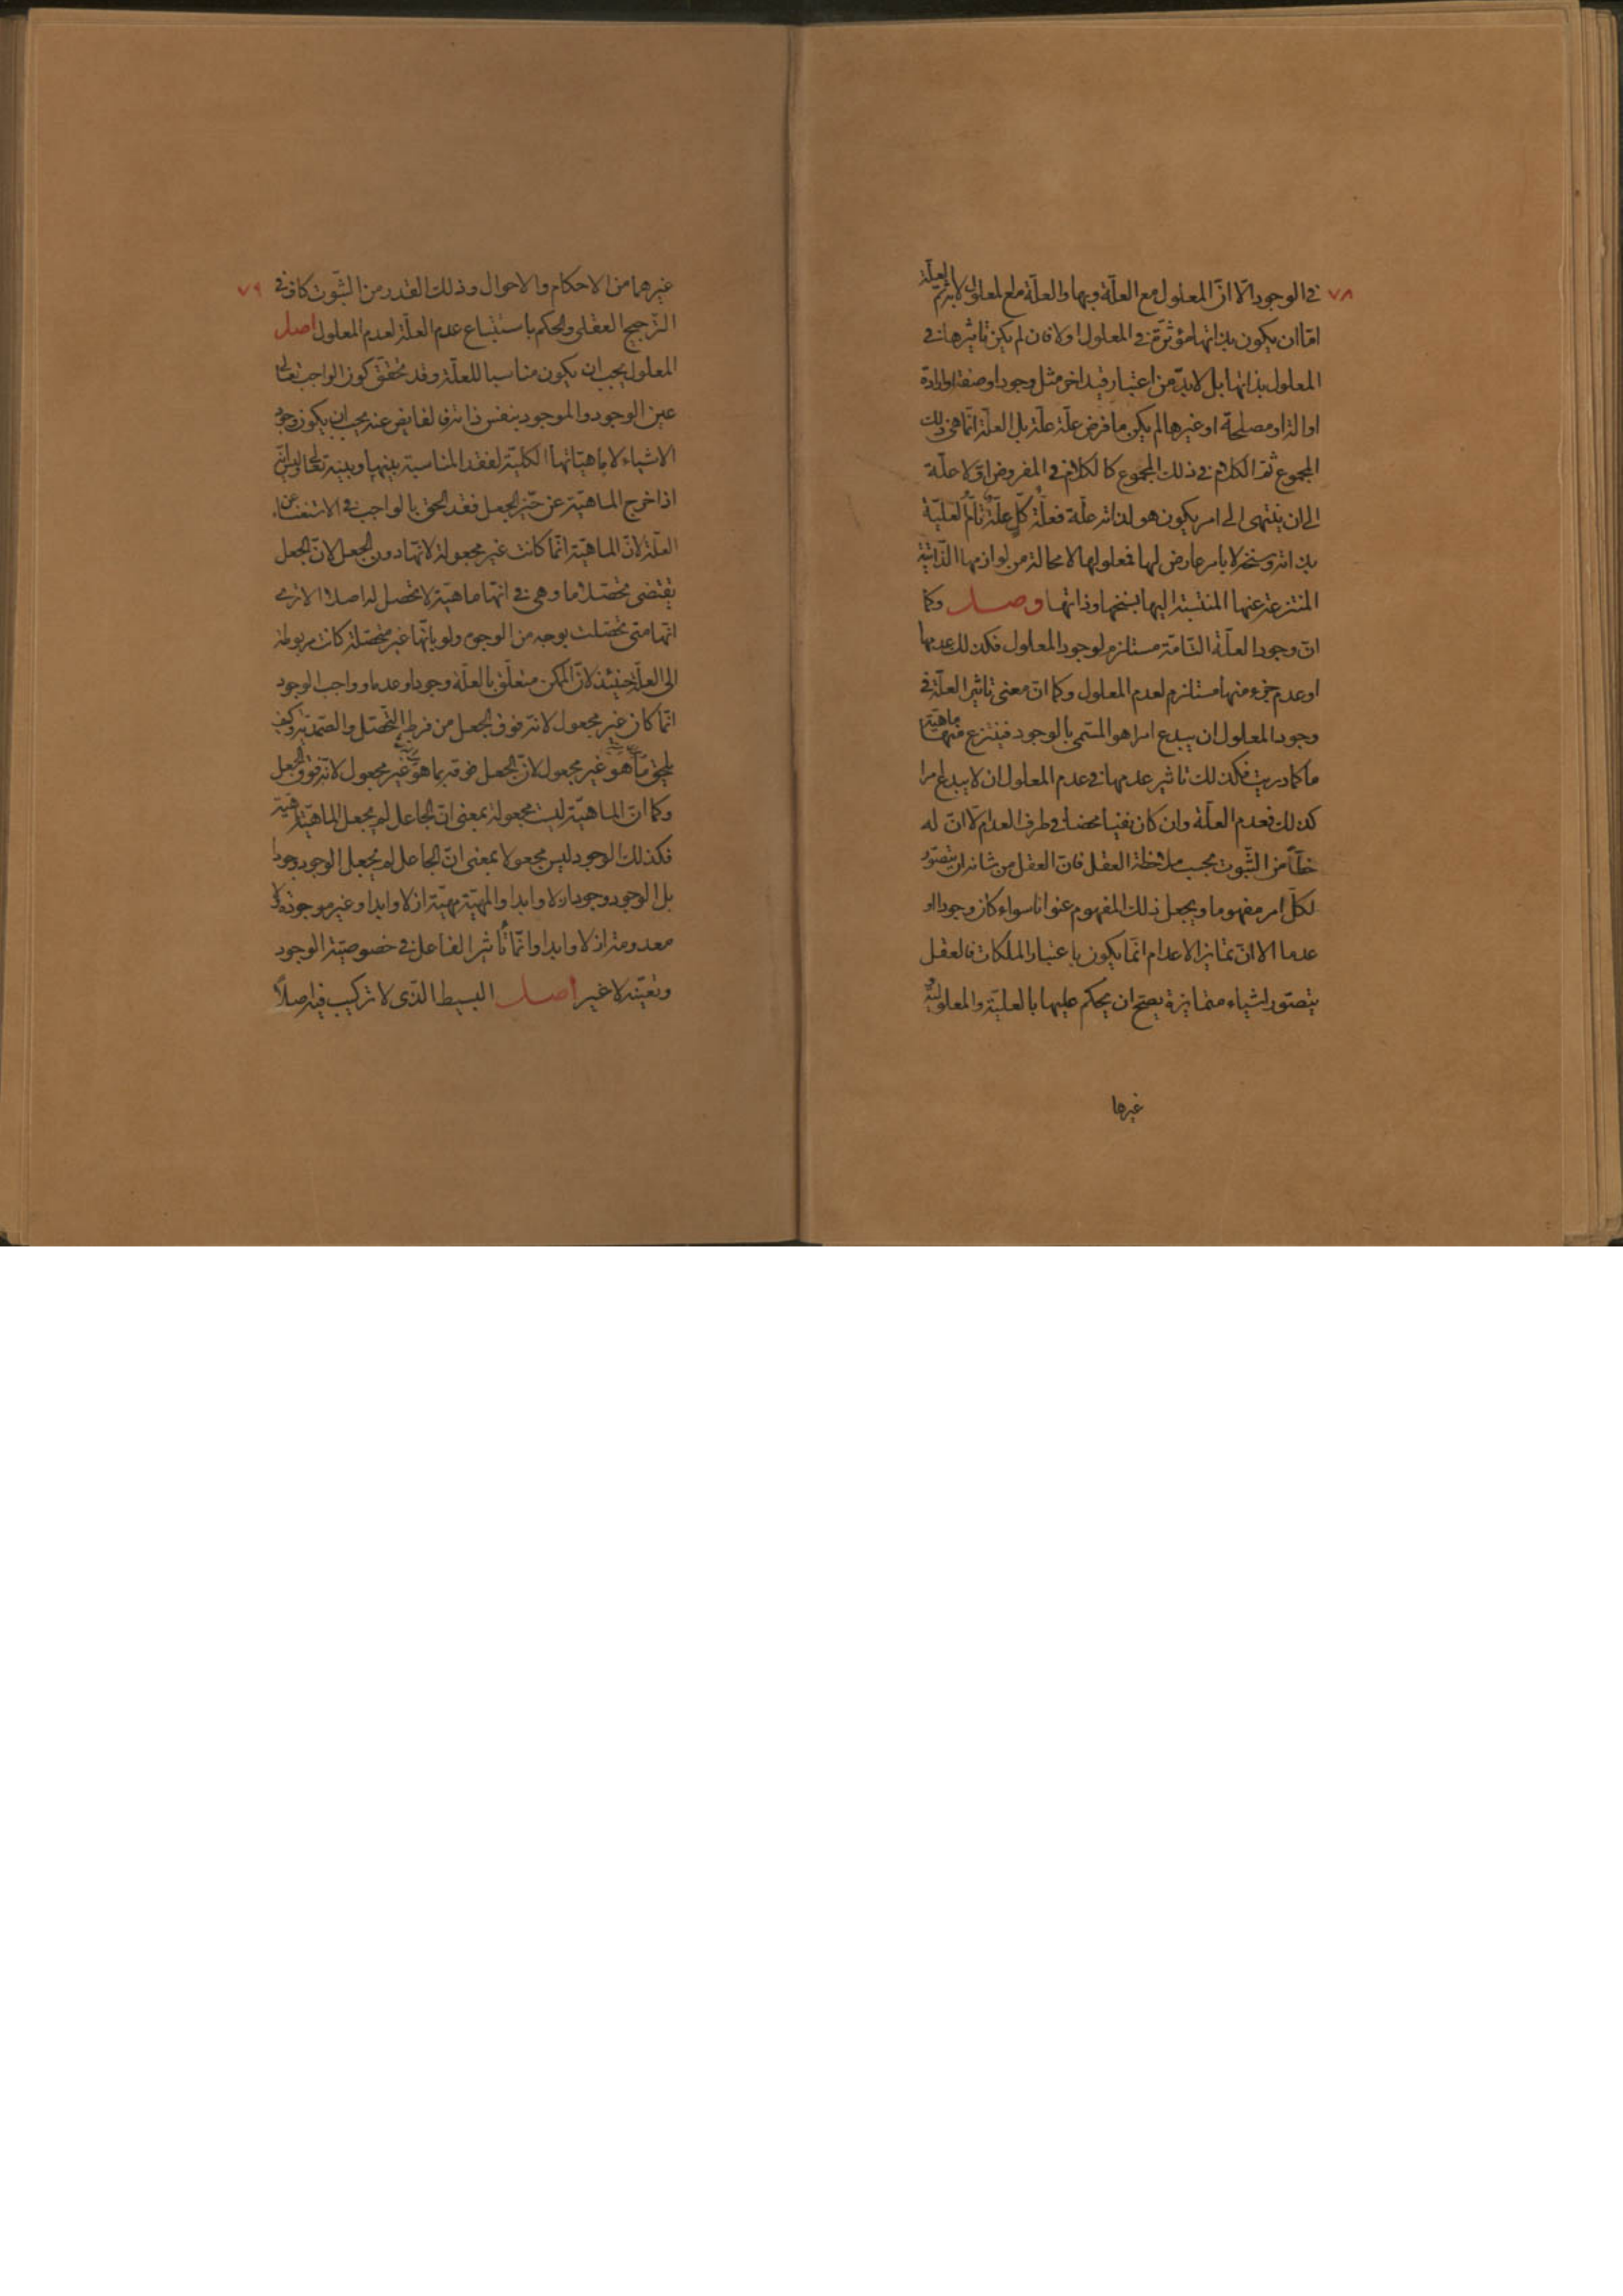 ٧٨
في الوجود الّا انّ المعلول مع العلّة وبها والعلّة مع المعلول لا به ثم العلّة
امّا ان يكون بذاتها مؤثرّة في المعلول اولا فان لم يكن تاثيرها في
المعلول بذاتها بل لابدّ من اعتبار قيد اخر مثل وجود او صفة او ارادة
او الة او مصلحة او غيرها لم يكن ما فرض علّة علّة بل العلّة انّما هي ذلك
المجموع ثمّ الكلام في ذلك المجموع كالكلام في المفروض اوّلا علّة
الى ان ينتهى الى امر يكون هو لذاته علّة فعلّة كلّ علّة تامّ العليّة
بذاته وسنخه لا بامر عارض لها فمعلولها لا محالة من لوازمها الذّاتية
المنتزعة عنها المنتسبة اليها بسنخها وذاتها وصل وكما
انّ وجود العلّة التامّة مستلزم لوجود المعلول فكذلك عدمها
او عدم جزء منها مستلزم لعدم المعلول وكما انّ معنى تاثير العلّة في
وجود المعلول ان يبدع امرا هو المسمّى بالوجود فينتزع منها ماهيّة
ما كما دريت فكذلك تاثير عدمها في عدم المعلول ان لا يبدع امرا
كذلك فعدم العلّة وان كان نفيا محضا في طرف العدم الّا انّ له
حظّا من الثّبوت بحسب ملاحظة العقل فانّ العقل من شانه ان يتصوّر
لكلّ امر مفهوما ويجعل ذلك المفهوم عنوانا سواء كان وجودا او
عدما الا انّ تمايز الاعدام انّما يكون باعتبار الملكات فالعقل
يتصوّر اشياء متمايزة يصحّ ان يحكم عليها بالعليّة والمعلوليّة و
غيرها
٧٩
غيرهما من الاحكام والاحوال وذلك القدر من الثّبوت كاف في
التّرجيح العقلى والحكم باستتباع عدم العلّة لعدم المعلول اصل
المعلول يجب ان يكون مناسبا للعلّة وقد تحقّق كون الواجب تعالى
عين الوجود والموجود بنفس ذاته فالفايض عنه يجب ان يكون وجود
الاشياء لا ماهيّاتها الكليّة لفقد المناسبة بينها وبينه تعالى وليس انّه
اذا خرج الماهيّة عن حيّز الجعل فقد الحق بالواجب في الاستغناء عن
العلّة لانّ الماهيّة انّما كانت غير مجعولة لانّها دون الجعل لانّ الجعل
يقتضى تحصّلا ما وهي في انّها ماهيّة لا تحصل له اصلا الا ترى
انّها متى تحصّلت بوجه من الوجوه ولو بانّها غير متحصّلة كانت مربوطة
الى العلّة حينئذ لانّ الممكن متعلّق بالعلّة وجودا وعدما وواجب الوجود
انّما كان غير مجعول لانّه فوق الجعل من فرط التّحصّل والصّمديّة وكيف
يلحق ما هو غير مجعول لانّ الجعل فوقه بما هو غير مجعول لانّه فوق الجعل
وكما انّ الماهيّة ليست مجعولة بمعنى انّ الجاعل لم يجعل الماهيّة ماهيّة
فكذلك الوجود ليس مجعولا بمعنى انّ الجاعل لم يجعل الوجود وجودا
بل الوجود وجود ازلا وابدا والمهيّة مهيّة ازلا وابدا وغير موجودة ولا
معدومة ازلا وابدا وانّما تأثير الفاعل في خصوصيّة الوجود
وتعيّنه لا غير اصل البسيط الذّى لا تركيب فيه اصلاً